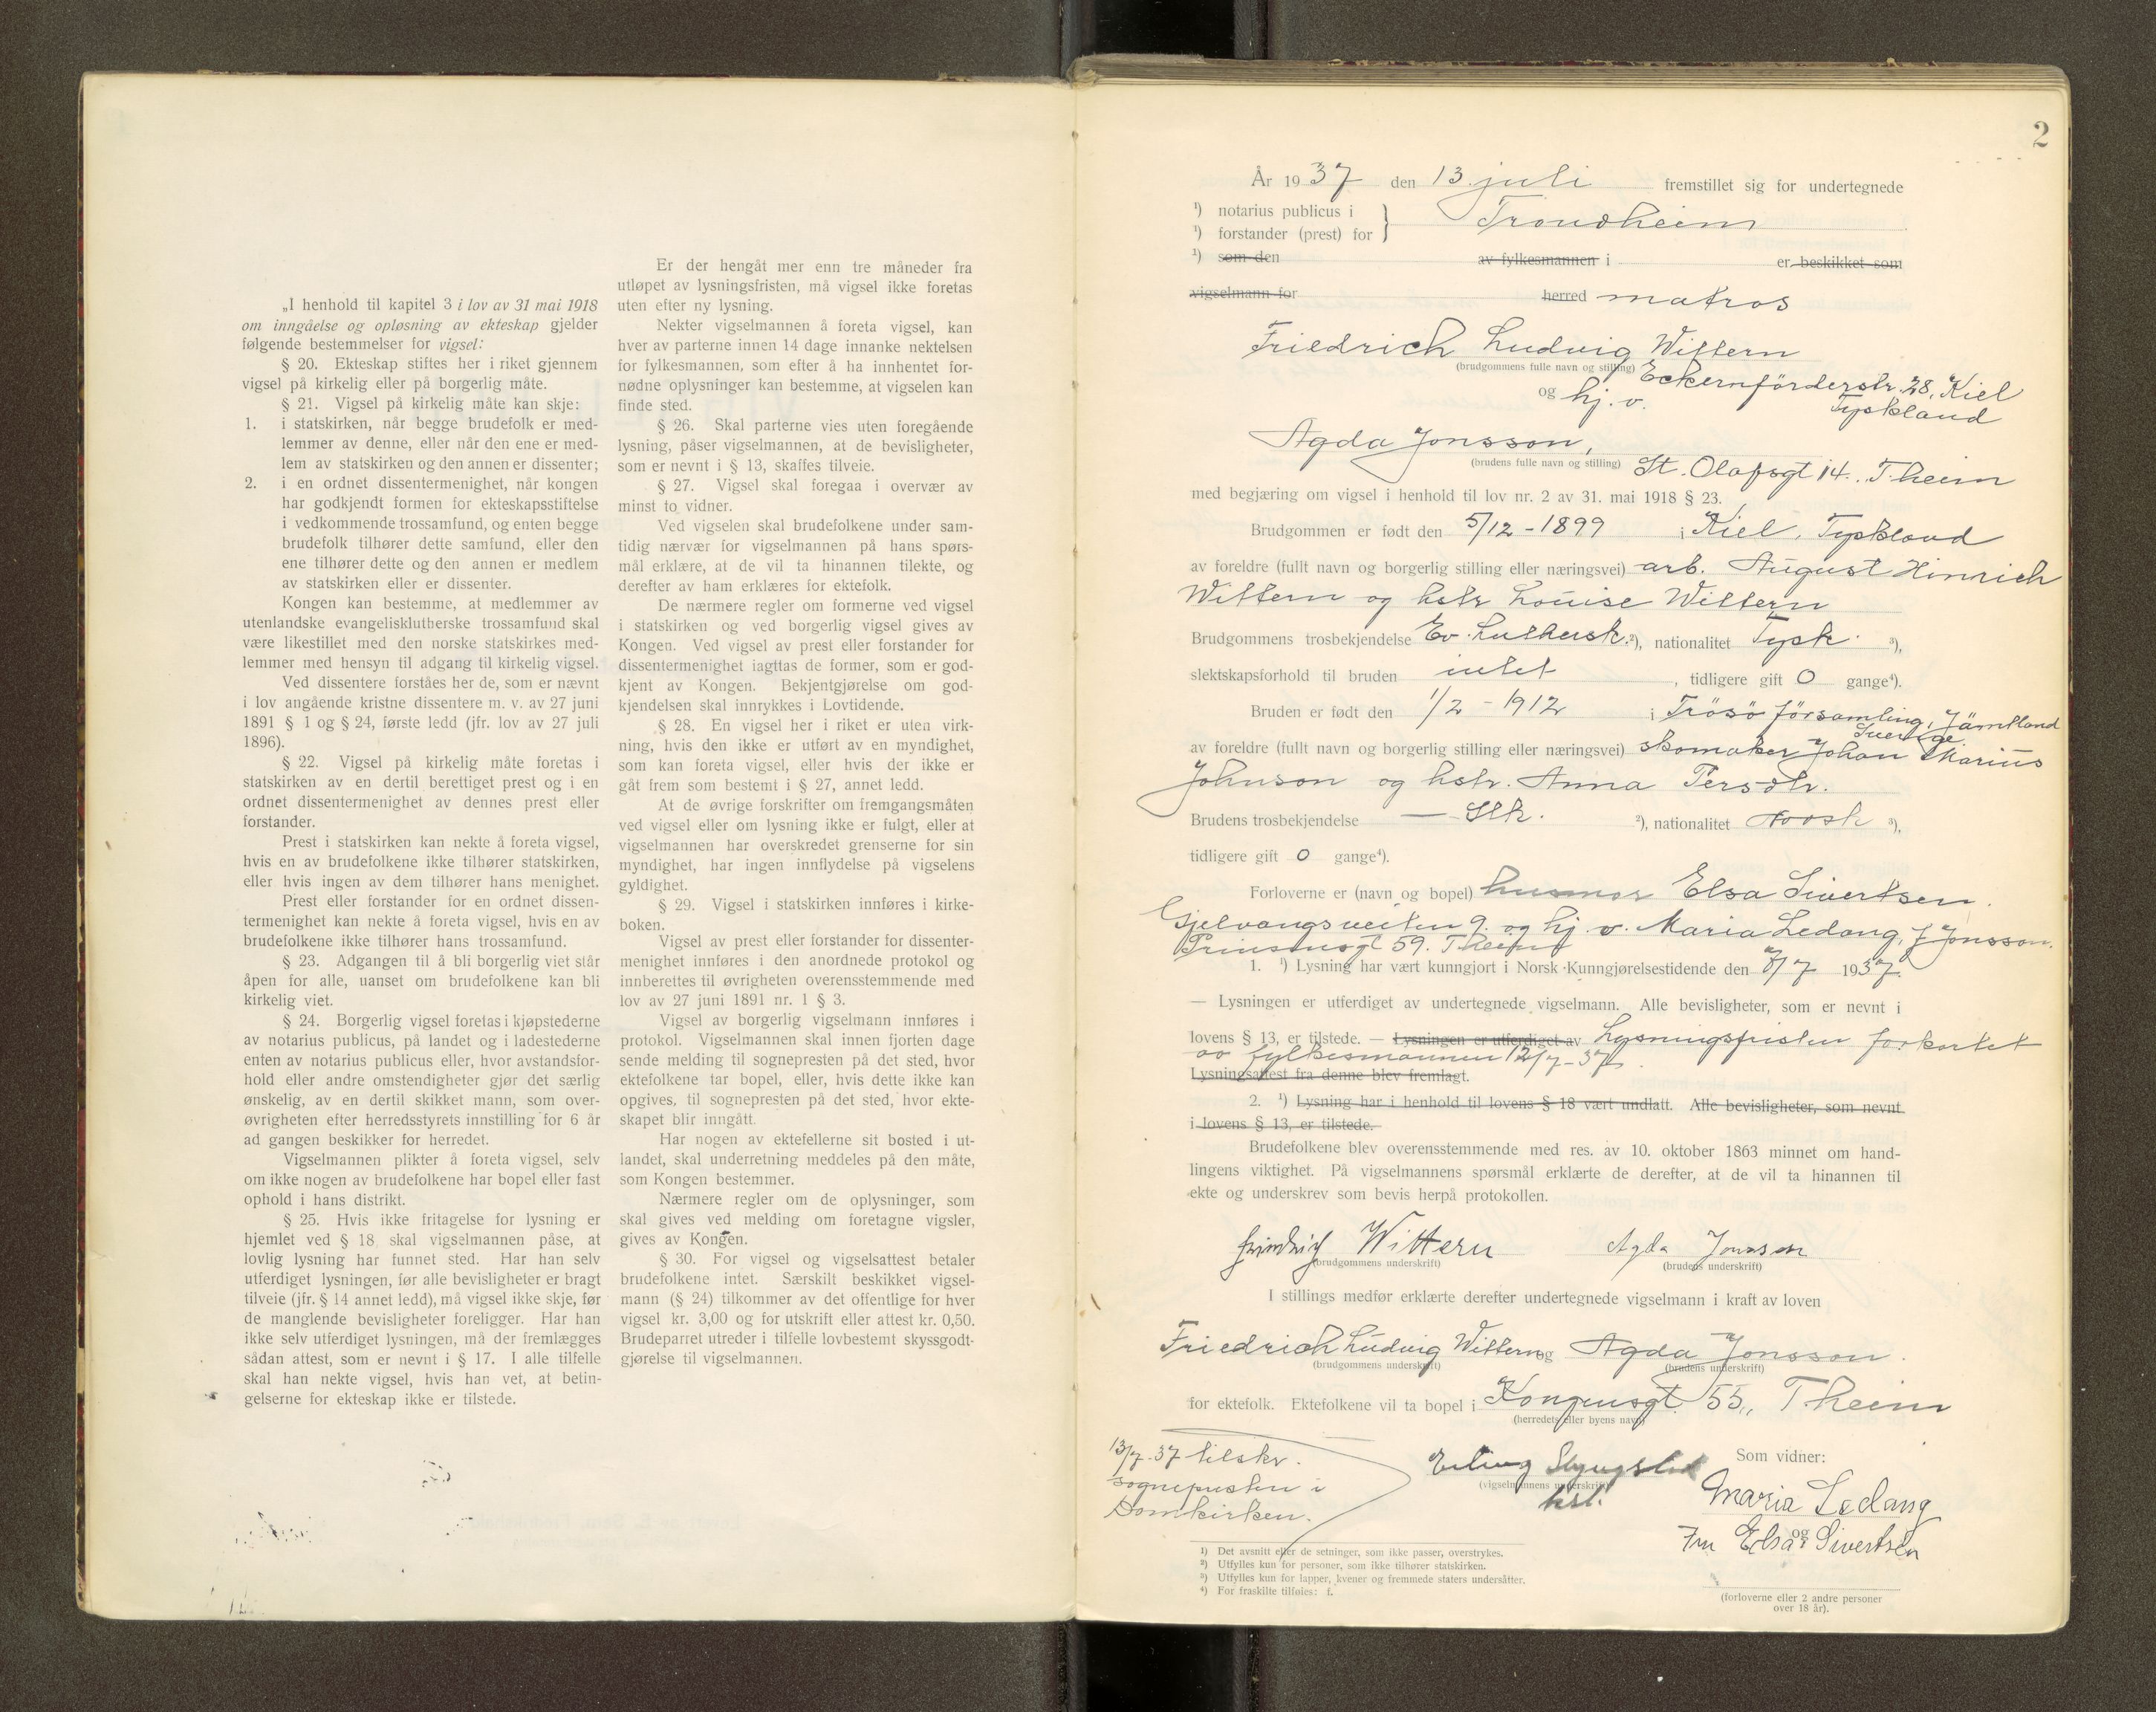 „I henhold til kapitel 3 i lov av 31 mai 1918
om inngåelse og opløsning av ekteskap gjelder
følgende bestemmelser for vigsel:
§ 20. Ekteskap stiftes her i riket gjennem
vigsel på kirkelig eller på borgerlig måte.
§ 21. Vigsel på kirkelig måte kan skje:
1. i statskirken, når begge brudefolk er med-
lemmer av denne, eller når den ene er med-
lem av statskirken og den annen er dissenter;
2. i en ordnet dissentermenighet, når kongen
har godkjendt formen for ekteskapsstiftelse
i vedkommende trossamfund, og enten begge
brudefolk tilhører dette samfund, eller den
ene tilhører dette og den annen er medlem
av statskirken eller er dissenter.
Kongen kan bestemme, at medlemmer av
utenlandske evangelisklutherske trossamfund skal
være likestillet med den norske statskirkes med-
lemmer med hensyn til adgang til kirkelig vigsel.
Ved dissentere forståes her de, som er nævnt
i lov angående kristne dissentere m. v. av 27 juni
1891 § 1 og § 24, første ledd (jfr. lov av 27 juli
1896).
§ 22. Vigsel på kirkelig måte foretas i
statskirken av en dertil berettiget prest og i en
ordnet dissentermenighet av dennes prest eller
forstander.
Prest i statskirken kan nekte å foreta vigsel,
hvis en av brudefolkene ikke tilhører statskirken,
eller hvis ingen av dem tilhører hans menighet.
Prest eller forstander for en ordnet dissen-
termenighet kan nekte å foreta vigsel, hvis en av
brudefolkene ikke tilhører hans trossamfund.
§ 23. Adgangen til å bli borgerlig viet står
åpen for alle, uanset om brudefolkene kan bli
kirkelig viet.
§ 24. Borgerlig vigsel foretas i kjøpstederne
av notarius publicus, på landet og i ladestederne
enten av notarius publicus eller, hvor avstandsfor-
hold eller andre omstendigheter gjør det særlig
ønskelig, av en dertil skikket mann, som over-
øvrigheten efter herredsstyrets innstilling for 6 år
ad gangen beskikker for herredet.
Vigselmannen plikter å foreta vigsel, selv
om ikke nogen av brudefolkene har bopel eller fast
ophold i hans distrikt.
§ 25. Hvis ikke fritagelse for lysning er
hjemlet ved § 18 skal vigselmannen påse, at
lovlig lysning har funnet sted. Har han selv
utferdiget lysningen, før alle bevisligheter er bragt
tilveie (jfr. § 14 annet ledd), må vigsel ikke skje, før
de manglende bevisligheter foreligger. Har han
ikke selv utferdiget lysningen, må der fremlægges
sådan attest, som er nevnt i § 17. I alle tilfelle
skal han nekte vigsel, hvis han vet, at betin-
gelserne for ekteskap ikke er tilstede.
Er der hengåt mer enn tre måneder fra
utløpet av lysningsfristen, må vigsel ikke foretas
uten efter ny lysning.
Nekter vigselmannen å foreta vigsel, kan
hver av parterne innen 14 dage innanke nektelsen
for fylkesmannen, som efter å ha innhentet for-
nødne oplysninger kan bestemme, at vigselen kan
finde sted.
§ 26. Skal parterne vies uten foregående
lysning, påser vigselmannen, at de bevisligheter,
som er nevnt i § 13, skaffes tilveie.
§ 27. Vigsel skal foregaa i overvær av
minst to vidner.
Ved vigselen skal brudefolkene under sam-
tidig nærvær for vigselmannen på hans spørs-
mål erklære, at de vil ta hinannen tilekte, og
derefter av ham erklæres for ektefolk.
De nærmere regler om formerne ved vigsel
i statskirken og ved borgerlig vigsel gives av
Kongen. Ved vigsel av prest eller forstander for
dissentermenighet iagttas de former, som er god-
kjent av Kongen. Bekjentgjørelse om god-
kjendelsen skal innrykkes i Lovtidende.
§ 28. En vigsel her i riket er uten virk-
ning, hvis den ikke er utført av en myndighet,
som kan foreta vigsel, eller hvis der ikke er
gåt frem som bestemt i § 27, annet ledd.
At de øvrige forskrifter om fremgangsmåten
ved vigsel eller om lysning ikke er fulgt, eller at
vigselmannen har overskredet grenserne for sin
myndighet, har ingen innflydelse på vigselens
gyldighet.
§ 29. Vigsel i statskirken innføres i kirke-
boken.
Vigsel av prest eller forstander for dissenter-
menighet innføres i den anordnede protokol og
innberettes til øvrigheten overensstemmende med
lov av 27 juni 1891 nr. 1 § 3.
Vigsel av borgerlig vigselmann innføres i
protokol. Vigselmannen skal innen fjorten dage
sende melding til sognepresten på det sted, hvor
ektefolkene tar bopel, eller, hvis dette ikke kan
opgives, til sognepresten på det sted, hvor ekte-
skapet blir inngått.
Har nogen av ektefellerne sit bosted i ut-
landet, skal underretning meddeles på den måte,
som Kongen bestemmer.
Nærmere regler om de oplysninger, som
skal gives ved melding om foretagne vigsler,
gives av Kongen.
§ 30. For vigsel og vigselsattest betaler
brudefolkene intet. Særskilt beskikket vigsel-
mann (§ 24) tilkommer av det offentlige for hver
vigsel kr. 3,00 og for utskrift eller attest kr. 0,50.
Brudeparret utreder i tilfelle lovbestemt skyssgodt-
gjørelse til vigselmannen.
2
År 1937 den 13. juli fremstillet sig for undertegnede
¹) notarius publicus i
¹) forstander (prest) for } Trondheim
¹) som den av fylkesmannen i er beskikket som
vigselmann for herred matros
Friedrich Ludvig Wittern
(brudgommens fulle navn og stilling) Eckernförderstr. 28, Kiel
og hj. v. Tyskland
Agda Jonsson,
(brudens fulle navn og stilling) St. Olafsgt 14. T.heim
med begjæring om vigsel i henhold til lov nr. 2 av 31. mai 1918 § 23.
Brudgommen er født den 5/12 - 1899 i Kiel, Tyskland
av foreldre (fullt navn og borgerlig stilling eller næringsvei) arb. August Hinrich
Wittern og hstr Louise Wittern
Brudgommens trosbekjendelse Ev. Luthersk. ²), nationalitet Tysk ³),
slektskapsforhold til bruden intet, tidligere gift 0 gange⁴).
Bruden er født den 1/2 - 1912 i Trösö församling, Jämtland
Sverige
av foreldre (fullt navn og borgerlig stilling eller næringsvei) skomaker Johan Marius
Johnson og hstr. Anna Persdtr.
Brudens trosbekjendelse — Stk. ²), nationalitet Norsk ³),
tidligere gift 0 gange⁴).
Forloverne er (navn og bopel) husmor Elsa Sivertsen.
Gjelvangsveiten 9. og hj. v. Maria Ledang, f Jonsson.
Prinsensgt 59. T.heim
1. ¹) Lysning har vært kunngjort i Norsk Kunngjørelsestidende den 7/7 1937.
— Lysningen er utferdiget av undertegnede vigselmann. Alle bevisligheter, som er nevnt i
lovens § 13, er tilstede. — Lysningen er utferdiget av Lysningsfristen forkortet
av fylkesmannen 12/7-37
Lysningsattest fra denne blev fremlagt.
2. ¹) Lysning har i henhold til lovens § 18 vært undlatt. Alle bevisligheter, som nevnt
i lovens § 13, er tilstede.
Brudefolkene blev overensstemmende med res. av 10. oktober 1863 minnet om hand-
lingens viktighet. På vigselmannens spørsmål erklærte de derefter, at de vil ta hinannen til
ekte og underskrev som bevis herpå protokollen.
Friedrich Wittern Agda Jonsson
(brudgommens underskrift) (brudens underskrift)
I stillings medfør erklærte derefter undertegnede vigselmann i kraft av loven
Friedrich Ludvig Wittern og Agda Jonsson.
(brudgommens underskrift) (brudens underskrift)
for ektefolk. Ektefolkene vil ta bopel i Kongensgt. 55, T.heim
(herredets eller byens navn)
13/7-37 tilskr.
sognepresten i
Domkirken.
Erling
(vigselmannens underskrift)
Som vidner:
Maria Ledang
og
Fru Elsa Sivertsen
(forloverne eller 2 andre personer
over 18 år).
¹) Det avsnitt eller de setninger, som ikke passer, overstrykes.
²) Utfylles kun for personer, som ikke tilhører statskirken.
³) Utfylles kun for lapper, kvener og fremmede staters undersåtter.
⁴) For fraskilte tilføies: f.